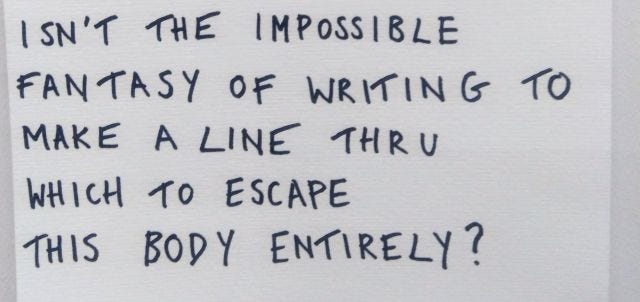 ISN'T THE IMPOSSIBLE
FANTASY OF WRITING TO
MAKE A LINE THRU
WHICH TO ESCAPE
THIS BODY ENTIRELY?